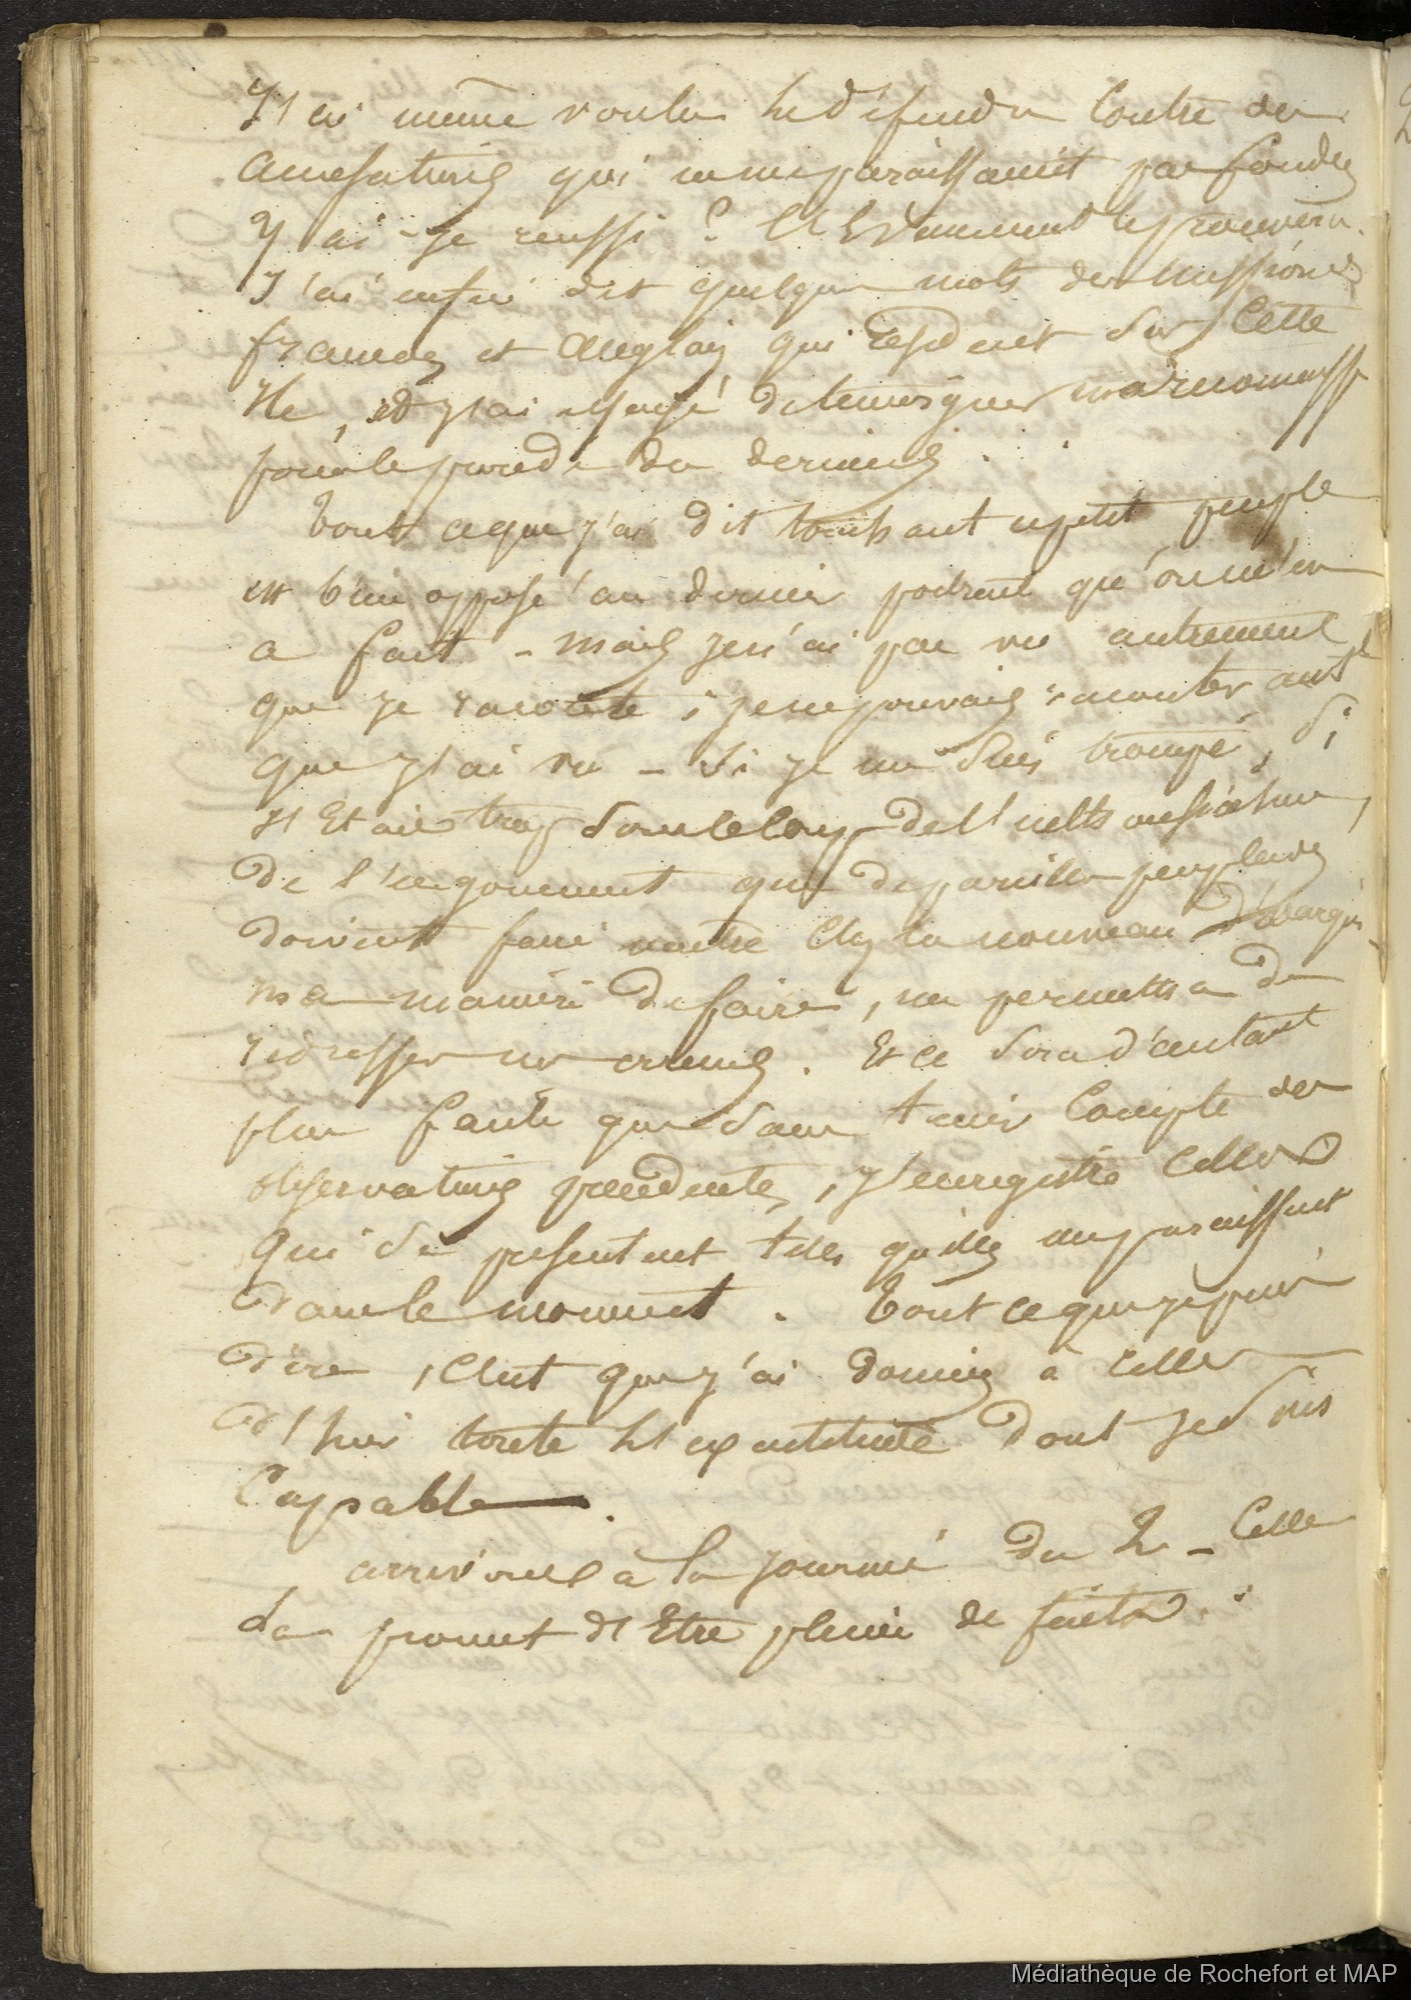 J'ai même voulu les défendre contre des
accusations qui ne me paraissaient pas fondées
Y ai-je reussi ? l'Evènement le prouvera.
J'ai enfin dit quelques mots des missions
francaises et Anglaises qui resident sur cette
Ile, et j'ai essayé de temoigner ma reconnaiss
pour le procédé des derniers.
Tout ce que j'ai dit touchant ce petit peuple
est bien opposé au dernier portrait qu'on m'en
a fait - mais je n'ai pas vu autrement
que je raconte, je ne pouvais raconter aut
que j'ai vu - si je me suis trompé, si
j'Etais trop sous le coup de l'
de l'engouement que de pareilles peuplades
doivent faire naitre chez le nouveau débarqué
ma manière de faire, me permettra de
redresser mes erreurs. Et ce sera d'autant
plus facile que sans tenir compte des
observations precedentes, j'enregistre celles
qui se presentent telles qu'elles me paraissent
dans le moment. Tout ce que je puis
dire, c'est que j'ai donné à celles
d'hier toute l'exactitude dont je suis
capable.
arrivons à la journée du 2 - Celle
la promet d'Etre pleine de faits.
Médiathèque de Rochefort et MAP